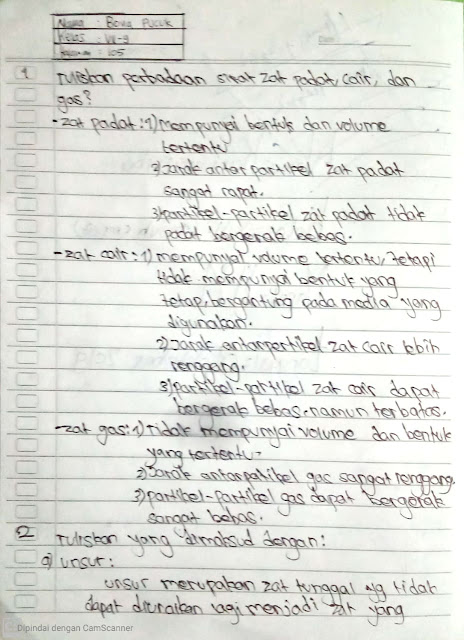 Nama : Bova Pucuk
Kelas : VII-9
Halaman : 105
Date
1 Tuliskan perbadaan sifat zat padat, cair, dan
gas?
- zat padat : 1) mempunyai bentuk dan volume
tertentu
2) Jarak antar partikel zat padat
sangat rapat.
3) partikel-partikel zat padat tidak
padat bergerak bebas.
- zat cair : 1) mempunyai volume tertentu, tetapi
tidak mempunyai bentuk yang
tetap, bergantung pada media yang
digunakan.
2) Jarak antarpartikel zat cair lebih
renggang.
3) partikel-partikel zat cair dapat
bergerak bebas. namun terbatas.
- zat gas : 1) tidak mempunyai volume dan bentuk
yang tertentu.
2) Jarak antarpatikel gas sangat renggang.
3) partikel-partikel gas dapat bergerak
sangat bebas.
2 Tuliskan yang dimaksud dengan :
a) unsur :
unsur merupakan zat tunggal yg tidak
dapat diuraikan lagi menjadi zat yang
Dipindai dengan CamScanner